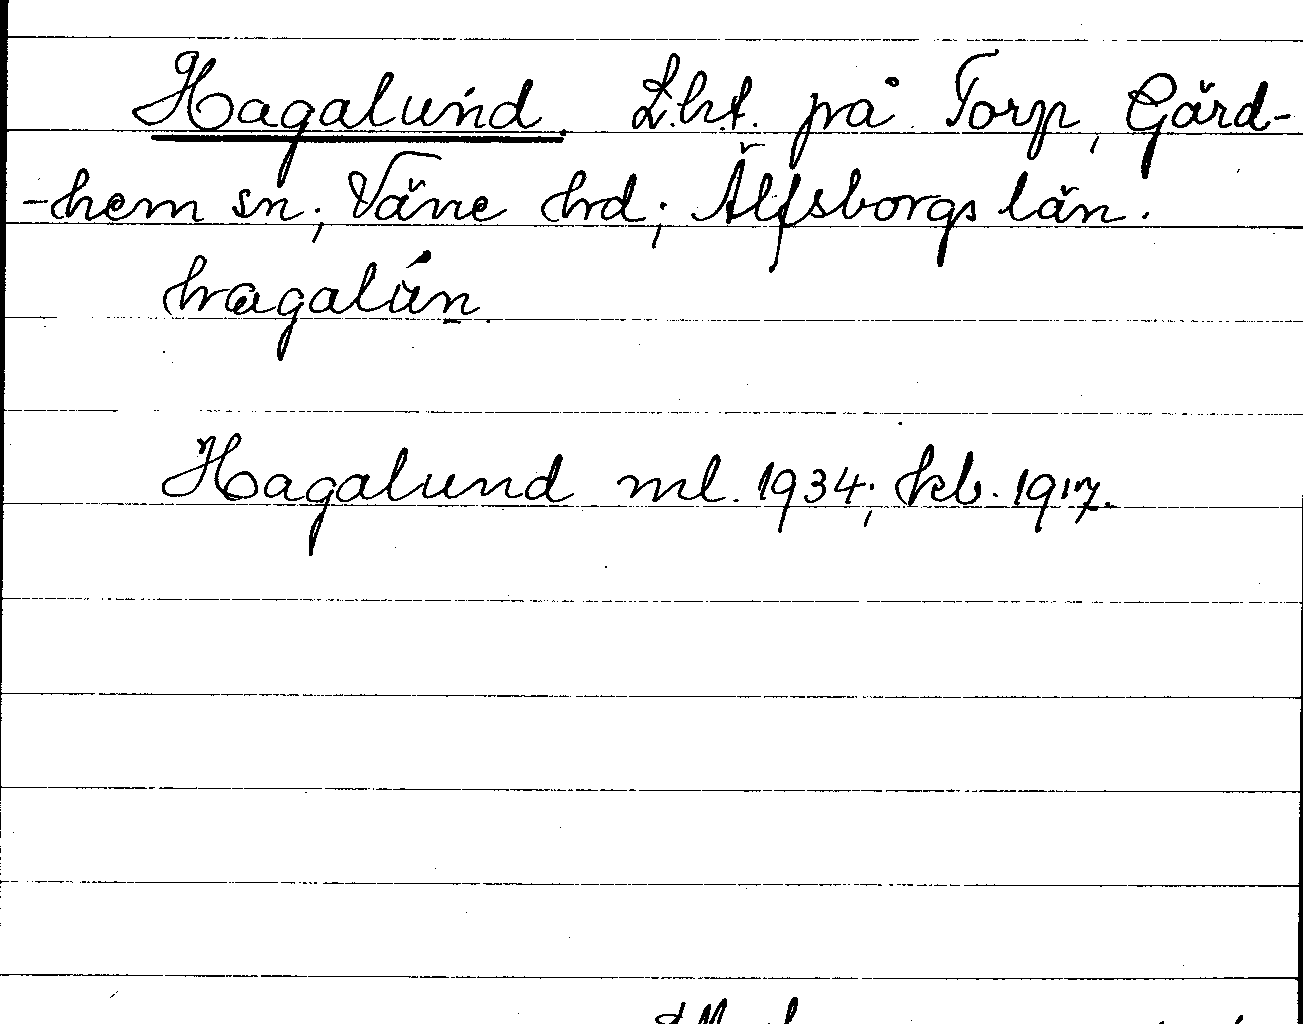 Hagalund. Lht. på Torp, Gärd-
-hem sn; Väne hrd; Älfsborgs län.
hagalún
Hagalund ml. 1934; kb. 1917.